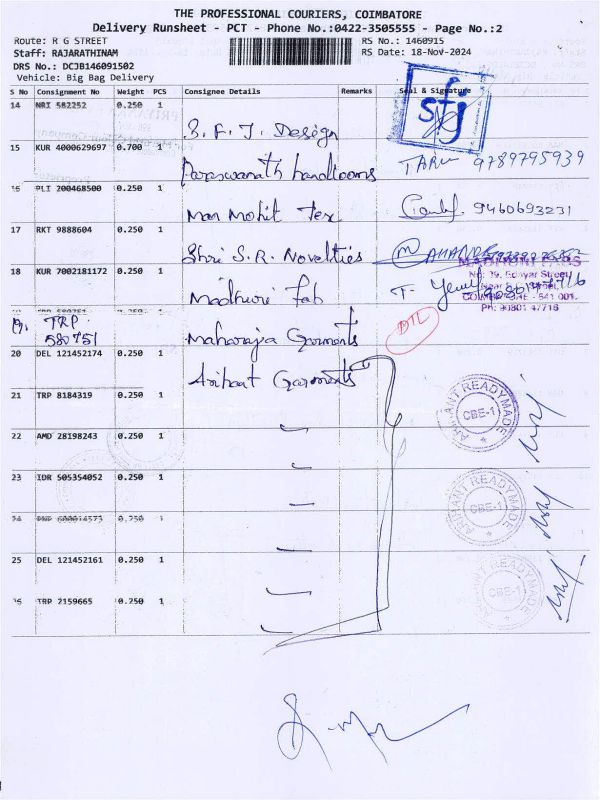 THE PROFESSIONAL COURIERS, COIMBATORE
Delivery Runsheet - PCT - Phone No.:0422-3505555 - Page No.:2
Route: R G STREET
RS No.: 1460915
Staff: RAJARATHINAM
RS Date: 18-Nov-2024
DRS No.: DCJB146091502
Vehicle: Big Bag Delivery
S No Consignment No Weight PCS Consignee Details Remarks Seal & Signature
14 NRI 582252 0.250 1 S. F. J. Design stj
15 KUR 4000629697 0.700 1 Paraswanath handlooms TARU 9789795939
16 PLI 200468500 0.250 1 Man Mohit Tex 9460693231
17 RKT 9888604 0.250 1 Shri S.R. Novelties
18 KUR 7002181172 0.250 1 Madhure Fab
MADHUNI FABS
No: 39, Edayar Street
COIMBATORE - 641 001.
Ph: 90801 47716
19. TRP 580751 Maharaja Garments DTL
20 DEL 121452174 0.250 1 Arihant Garments
21 TRP 8184319 0.250 1
ARIHANT READYMADE CBE-1
22 AMD 28198243 0.250 1
23 IDR 505354052 0.250 1
ARIHANT READYMADE CBE-1
24 0.250 1
25 DEL 121452161 0.250 1
ARIHANT READYMADE CBE-1
26 TRP 2159665 0.250 1